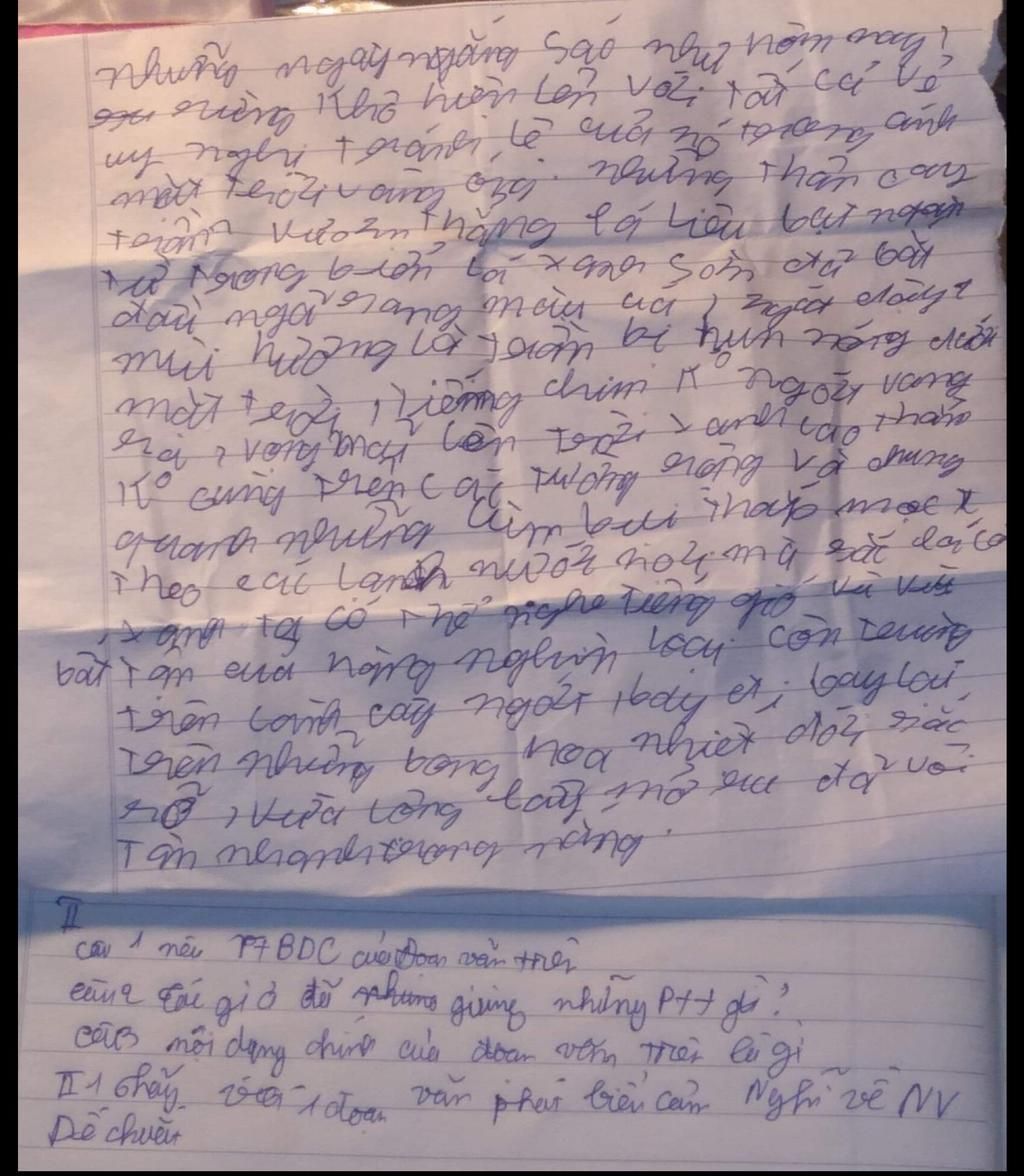 những ngày ngắng Sáo như hôm nay,
rừng Khô hiện lên với tất cả vẻ
uy nghi tráng lệ của nó trong ánh
mặt trời vàng óng. Những thân cây
tràm vươn thẳng lá liễu bạt ngàn
từ trong biển lá xanh Sờm đã bắt
đầu ngả sang màu úa, ngát dậy
mùi hương lá tràm bị hun nóng dưới
mặt trời, tiếng chim K° ngớt vang
xa, vọng mãi lên trời xanh cao thẳm
K° cùng trên các trường rộng và chung
quanh những lùm bụi thấp mọc
theo các lạnh nước nơi mà sắc đã có
xanh ta có thể nghe tiếng gió vù vù
bất tận của hàng nghìn loại côn trùng
trên cành cây ngớt bay đi bay lại
trên những bông hoa nhiệt đới sắc
sỡ, vừa lông lẫy mở ra đã vội
Tàn nhanh trong nắng.
II
câu 1 nêu PTBDC của đoạn văn trên
câu 2 Tác giả đã giùng những Ptt gì?
câu3 nội dụng chính của đoan văn trên là gì
II 1 1 đoạn văn phát biểu cảm Nghĩ về NV
Dế choắt